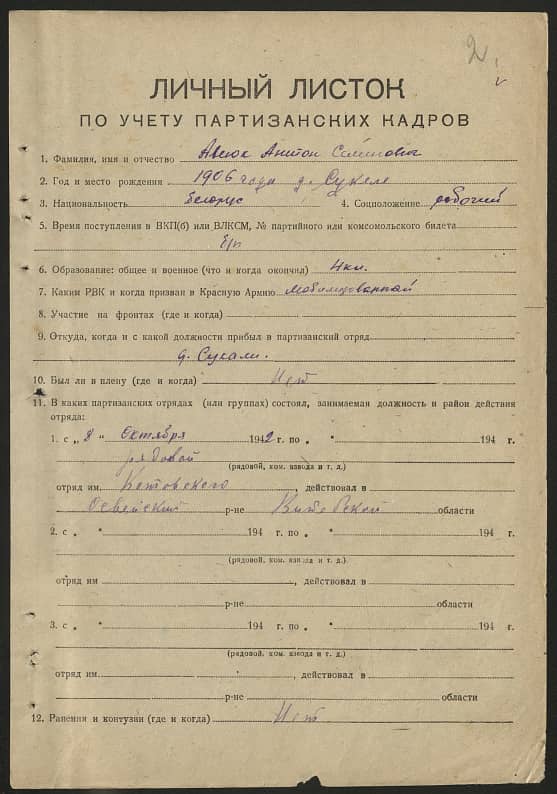 2
ЛИЧНЫЙ ЛИСТОК
ПО УЧЕТУ ПАРТИЗАНСКИХ КАДРОВ
1. Фамилия, имя и отчество Антон
2. Год и место рождения 1906 года д.
3. Национальность белорус 4. Соцположение рабочий
5. Время поступления в ВКП(б) или ВЛКСМ, № партийного или комсомольского билета
б/п
6. Образование: общее и военное (что и когда окончил) 4 кл.
7. Каким РВК и когда призван в Красную Армию
8. Участие на фронтах (где и когда)
9. Откуда, когда и с какой должности прибыл в партизанский отряд
д. Сукали.
10. Был ли в плену (где и когда) Нет
11. В каких партизанских отрядах (или группах) состоял, занимаемая должность и район действия
отряда:
1. с „ 8 " Октября 1942 г. по „ " 194 г.
рядовой
(рядовой, ком. взвода и т. д.)
отряд им. Котовского, действовал в
Освейский р-не Витебской области
2. с „ " 194 г. по „ " 194 г.
(рядовой, ком. взвода и т. д.)
отряд им , действовал в
р-не области
3. с „ " 194 г. по „ " 194 г.
(рядовой, ком. взвода и т. д.)
отряд им. , действовал в
р-не области
12. Ранения и контузии (где и когда) Нет